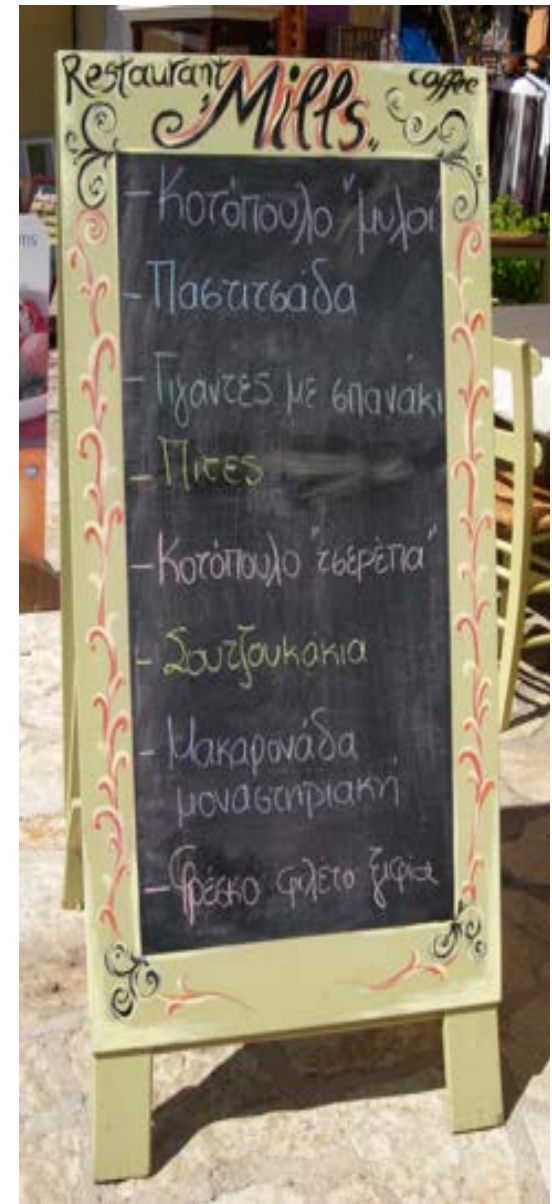 Restaurant Mills coffee
- Κοτόπουλο "μυλοι
- Παστιτσάδα
- Γίγαντες με σπανάκι
- Πίτες
- Κοτόπουλο "τσερέπα"
- Σουτζουκακια
- Μακαρονάδα
μοναστηριακή
- Φρέσκο φιλέτο ξιφία